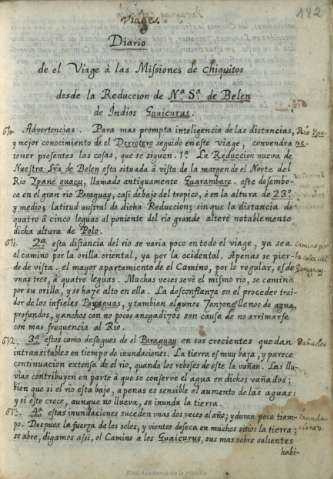 Viages.
192
Diario
de el Viage à las Missiones de Chiquitos
desde la Reduccion de Nª Sª de Belen
de Indios Guaicurus.
Advertencias. Para mas prompta inteligencia de las distancias,
y mejor conocimiento de el Derrotero seguido en este viage, convendra
tener presentes las cosas, que se siguen. 1ª La Reduccion nueva de
Nuestra Sra de Belen esta situada à vista de la margen de el Norte del
Rio Ypanè guazu, llamado antiguamente Guarambarè. este desembo-
ca en el gran rio Paraguay, casi debajo del tropico, ò en la altura de 23 gs
y medio; latitud austral de dicha Reduccion; sin que la distancia de
quatro à cinco leguas al poniente del rio grande altere notablemente
dicha altura de Polo.
2ª esta distancia del rio se varia poco en todo el viage, ya sea
el camino por la orilla oriental, ya per la occidental. Apenas se pier-
de de vista. el mayor apartamiento de el Camino, por lo regular, es de
unas tres, à quatro leguas. Muchas veces se vè el mismo rio, se camina
por su orilla, y se haze alto en ella. La desconfianza en el proceder trai-
dor de los infieles Payaguas, y tambien algunos Zanjones llenos de agua,
profundos, y anchos con no pocos anegadizos son causa de no arrimarse
con mas frequencia al Rio.
612. 3ª estos como desagues de el Paraguay en sus crecientes quedan
intransitables en tiempo de inundaciones. La tierra es muy baja, y parece
continuacion extensa de el rio, quando los rebojes de este la vañan. Las llu-
vias contribuyen en parte à que se conserve el agua en dichos vañados;
bien que si el rio esta bajo, apenas es sensible el aumento de las aguas:
y si este crece, aunque no llueva, se inunda la tierra.
613. 4ª estas inundaciones suceden unas dos veces al año; y duran poco tiem-
po. Despues la fuerza de los soles, y vientos deseca en muchos sitios la tierra;
se abre, digamos assi, el Camino à los Guaicurus, sus mas sobre salientes
habi-
Bañados
Real Academia de la Historia